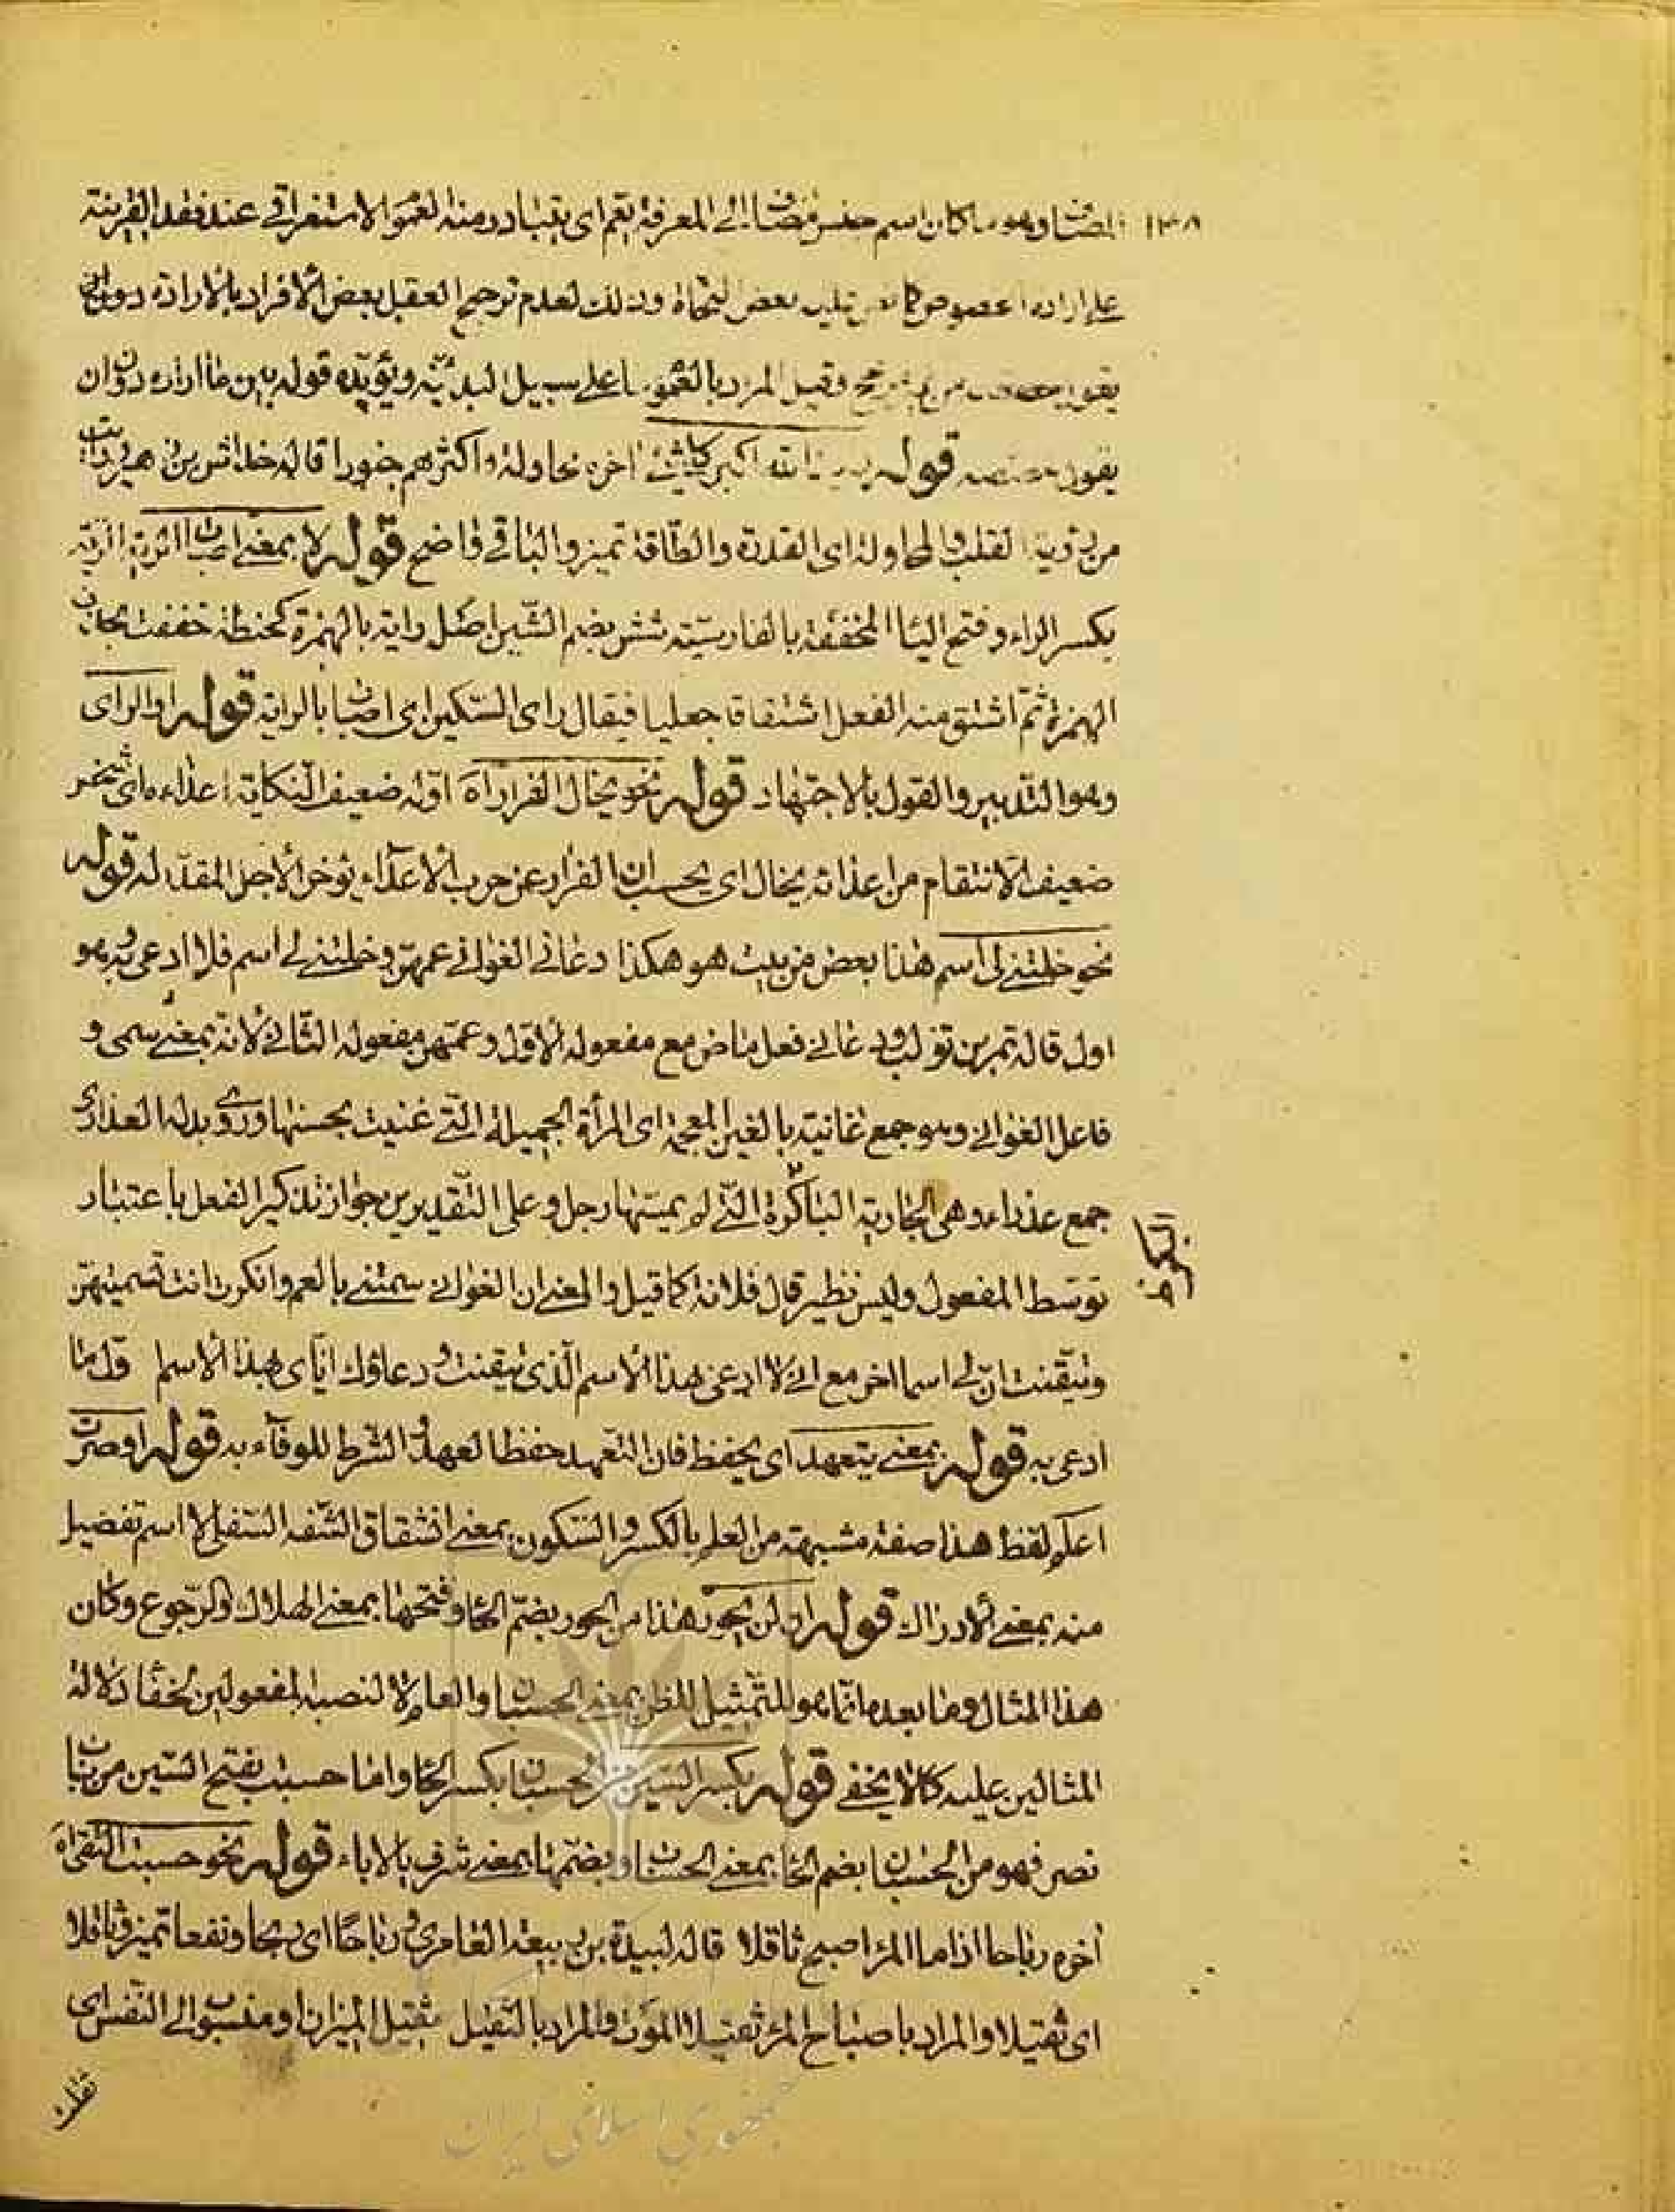 ١٣٨ المضاف وهو ما كان اسم جنس مضافا الى المعرفة يعم اى يتبادر منه العموم الاستغراقى عند فقد القرينة
على ارادة بعض النحاة وذلك لعدم ترجيح العقل بعض الافراد بالارادة دون
من وقيل المراد بالعموم ما على سبيل البدليّة ويؤيّده قوله بين ما اراده دوان
يقون قوله الله اكبر كل شئ اخره محاولة واكثرهم جنودا قاله خداش بن زهير رايت
من رؤية القلب والمحاولة اى القدرة والطّاقة تميز والباقى واضح قوله لا بمعنى اصاب الرية الرية
بكسر الراء وفتح اليا المخففة بالفارسيّة شش بضم الشّين اصل راية بالهمزة كحنطة خففت بحذف
الهمزة ثمّ اشتق منه الفعل اشتقاقا جعليا فيقال راى السّكين اى اصاب الراية قوله او الراى
وهو التدبير والقول بالاجتهاد قوله نحو يخال الفرار اه اوله ضعيف النكاية اعداءه اى شخص
ضعيف الانتقام من اعدائه يخال اى يحسب ان الفرار عن حرب الاعداء يؤخر الاجل المقدّر له قوله
نحو خلتنى لى اسم هذا بعض من بيت هو هكذا دعانى الغوانى عمهنّ وخلتنى لى اسم فلا ادعى به وهو
اول قاله نمر بن تولب ودعانى فعل ماض مع مفعوله الاوّل وعمهن مفعوله الثانى لانّه بمعنى سمى و
فاعل الغوانى وهو جمع غانية بالغين المعجمة اى المرأة الجميلة الّتى غنيت بحسنها وروى بدله العذارى
جمع عذراء وهى الجارية الباكرة الّتى لم يمسّها رجل وعلى التّقديرين جواز تذكير الفعل باعتبار
توسّط المفعول وليس نظير قال فلانة كما قيل والمعنى ان الغوانى سمتنى بالعم وانكرن انت تسميتهنّ
وتيقّنت انّ لى اسما اخر مع انى لا ادعى بهذا الاسم الّذى تيقنت ودعاؤك ايّاى بهذا الاسم قل ما
ادعى به قوله بمعنى يتعهد اى يحفظ فان التعهد حفظ العهد والشرط للوفاء به قوله او صرت
اعلم لفظ هذا صفة مشبهة من العلم بالكسر والسّكون بمعنى انشقاق الشّفة السّفلى لا اسم تفضيل
منه بمعنى الادراك قوله او لن يحور هذا من الحور بضمّ الحا وفتحها بمعنى الهلاك والرّجوع وكان
هذا المثال وما بعده انّما هو للتّمثيل للظن بمعنى الحسبان والعلم لا لنصبه المفعولين لخفاء دلالة
المثالين عليه كما لا يخفى قوله بكسر السّين من الحسبان بكسر الحا واما حسبت بفتح السّين من باب
نصر فهو من الحسبان بضم الحا بمعنى الحساب وبضمّها بمعنى شرف بالاباء قوله نحو حسبت التقى اه
آخره رباحا اذا ما المرء اصبح ثاقلا قاله لبيد بن ربيعة العامرى ورباحا اى ربحا ونفعا تميز وثاقلا
اى ثقيلا والمراد باصباح المرء ثقيلا الموت والمراد بالثّقيل ثقيل الميزان او منسوب الى النّفس اى
الباكرة خ
جمهوری اسلامی ایران